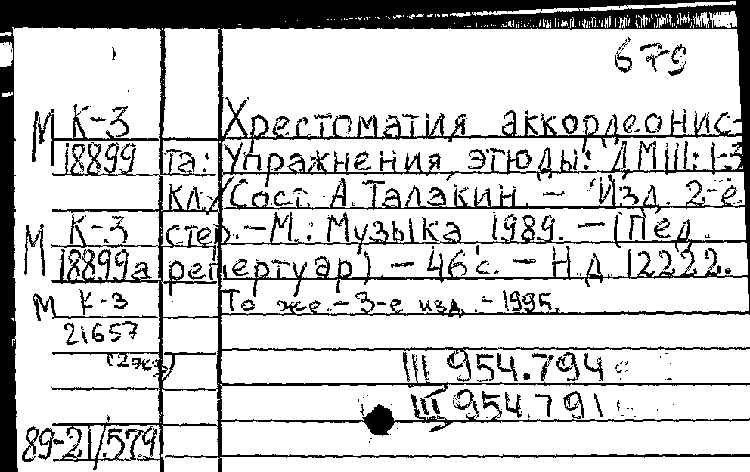 679
М К-3 Хрестоматия аккордеонис-
18899 та: Упражнения, этюды: ДМШ: 1-3
кл./Сост. А. Талакин. – Изд. 2-е
М К-3 стер. – М.: Музыка 1989. – (Пед.
18899а репертуар) – 46 с. – Н.д. 12222.
М К-3 То же. – 3-е изд. – 1995.
21657
(2экз)
III 954.794
III 954.791
89-21/579